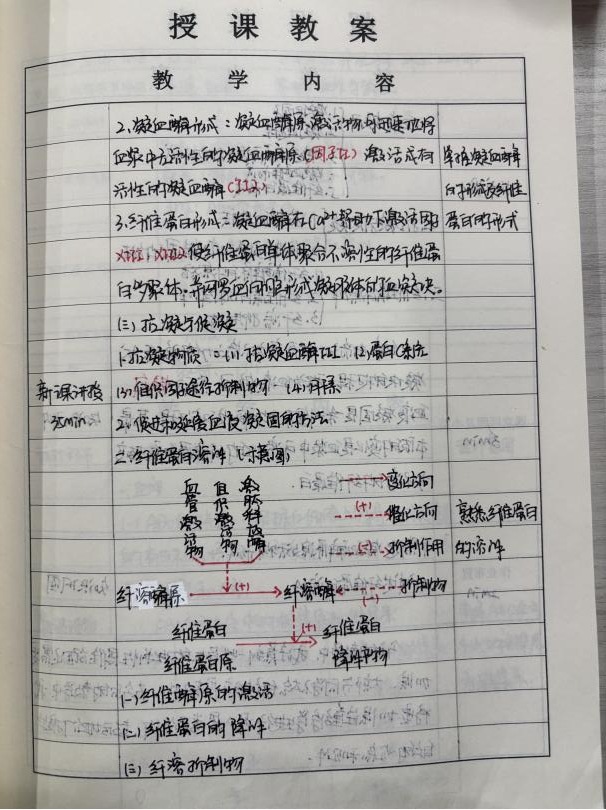 授课教案
教学内容
2、凝血酶形成：凝血酶原激活物可迅速地将
血浆中无活性的凝血酶原(因子II) 激活成有 掌握凝血酶
活性的凝血酶(IIa) 的形成及纤维
3、纤维蛋白形成：凝血酶在Ca²⁺帮助下激活因 蛋白的形式
XIII、XIIIa使纤维蛋白单体聚合不溶性的纤维蛋
白多聚体，并网罗血细胞形式凝胶体的血凝块。
(三)抗凝与促凝
1、抗凝物质：(1)抗凝血酶III (2)蛋白C系统
新课讲授 (3)组织因子途径抑制物 (4)肝素
35min 2、促进和延缓血液凝固的方法
二、纤维蛋白溶解(示意图)
血管激活物 组织激活物 激肽释酶
变化方向
(+) 催化方向 熟悉纤维蛋白
(-) 抑制作用 的溶解
纤溶酶原 (+) 纤溶酶 (-) 抑制物
纤维蛋白 (+) 纤维蛋白
纤维蛋白原 降解产物
(一)纤维酶原的激活
(二)纤维蛋白的降解
(三)纤溶抑制物